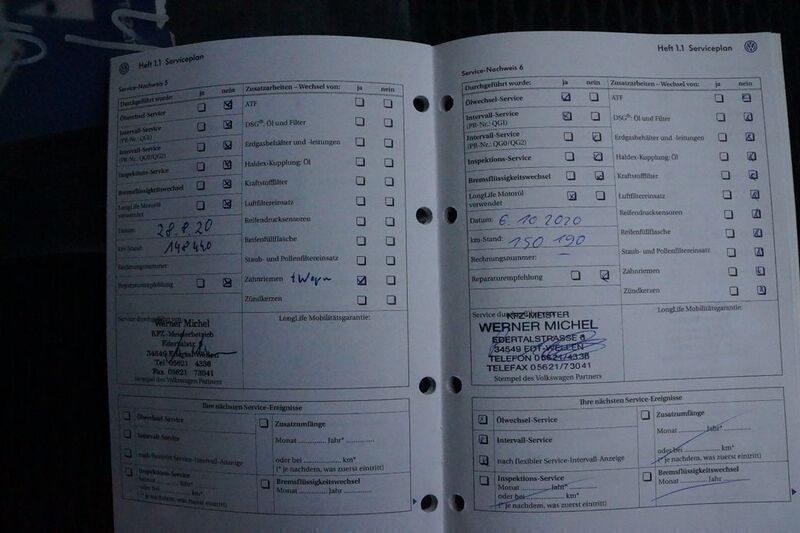 Heft 1.1 Serviceplan
Service-Nachweis 5
Durchgeführt wurde: ja nein
Ölwechsel-Service
Intervall-Service
(PR-Nr.: QG1)
Intervall-Service
(PR-Nr.: QG0/QG2)
Inspektions-Service
Bremsflüssigkeitswechsel
LongLife Motoröl
verwendet
Datum: 28.8.20
km-Stand: 148440
Rechnungsnummer:
Reparaturempfehlung
Zusatzarbeiten – Wechsel von: ja nein
ATF
DSG®: Öl und Filter
Erdgasbehälter und -leitungen
Haldex-Kupplung: Öl
Kraftstofffilter
Luftfiltereinsatz
Reifendrucksensoren
Reifenfüllflasche
Staub- und Pollenfiltereinsatz
Zahnriemen
Zündkerzen
Service durchgeführt von:
Werner Michel
KFZ-Meisterbetrieb
Edertalstr. 6
34549 Edertal-Wellen
Tel 05621 4336
Fax. 05621 73041
Stempel des Volkswagen Partners
LongLife Mobilitätsgarantie:
Ihre nächsten Service-Ereignisse
Ölwechsel-Service
Intervall-Service
nach flexibler Service-Intervall-Anzeige
Inspektions-Service
Monat ........... Jahr* ...........
oder bei ........... km*
(* je nachdem, was zuerst eintritt)
Zusatzumfänge
Monat ........... Jahr* ...........
oder bei ........... km*
(* je nachdem, was zuerst eintritt)
Bremsflüssigkeitswechsel
Monat ........... Jahr ...........
Heft 1.1 Serviceplan
Service-Nachweis 6
Durchgeführt wurde: ja nein
Ölwechsel-Service
Intervall-Service
(PR-Nr.: QG1)
Intervall-Service
(PR-Nr.: QG0/QG2)
Inspektions-Service
Bremsflüssigkeitswechsel
LongLife Motoröl
verwendet
Datum: 6.10 2020
km-Stand: 150 190
Rechnungsnummer:
Reparaturempfehlung
Zusatzarbeiten – Wechsel von: ja nein
ATF
DSG®: Öl und Filter
Erdgasbehälter und -leitungen
Haldex-Kupplung: Öl
Kraftstofffilter
Luftfiltereinsatz
Reifendrucksensoren
Reifenfüllflasche
Staub- und Pollenfiltereinsatz
Zahnriemen
Zündkerzen
Service durchgeführt von:
KFZ-MEISTER
WERNER MICHEL
EDERTALSTRASSE 6
34549 EDT-WELLEN
TELEFON 05621/4336
TELEFAX 05621/73041
Stempel des Volkswagen Partners
LongLife Mobilitätsgarantie:
Ihre nächsten Service-Ereignisse
Ölwechsel-Service
Intervall-Service
nach flexibler Service-Intervall-Anzeige
Inspektions-Service
Monat ........... Jahr* ...........
oder bei ........... km*
(* je nachdem, was zuerst eintritt)
Zusatzumfänge
Monat ........... Jahr* ...........
oder bei ........... km*
(* je nachdem, was zuerst eintritt)
Bremsflüssigkeitswechsel
Monat ........... Jahr ...........